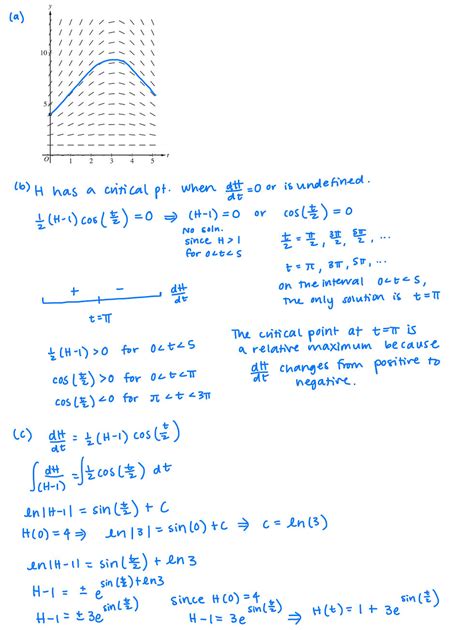 (a)
y
10
5
O 1 2 3 4 5 t
(b) H has a critical pt. when dH/dt = 0 or is undefined.
1/2 (H-1) cos(t/2) = 0 ⇒ (H-1) = 0 or cos(t/2) = 0
No soln.
since H > 1
for 0<t<5
t/2 = π/2, 3π/2, 5π/2, ...
t = π, 3π, 5π, ...
on the interval 0<t<5,
the only solution is t=π
+ - dH/dt
t=π
1/2 (H-1) > 0 for 0<t<5
cos(t/2) > 0 for 0<t<π
cos(t/2) < 0 for π<t<3π
The critical point at t=π is
a relative maximum because
dH/dt changes from positive to
negative.
(c) dH/dt = 1/2 (H-1) cos(t/2)
∫ dH/(H-1) = ∫ 1/2 cos(t/2) dt
ln|H-1| = sin(t/2) + C
H(0) = 4 ⇒ ln|3| = sin(0) + C ⇒ C = ln(3)
ln|H-1| = sin(t/2) + ln3
H-1 = ± e^(sin(t/2)+ln3)
H-1 = ± 3e^(sin(t/2))
since H(0) = 4
H-1 = 3e^(sin(t/2)) ⇒ H(t) = 1 + 3e^(sin(t/2))